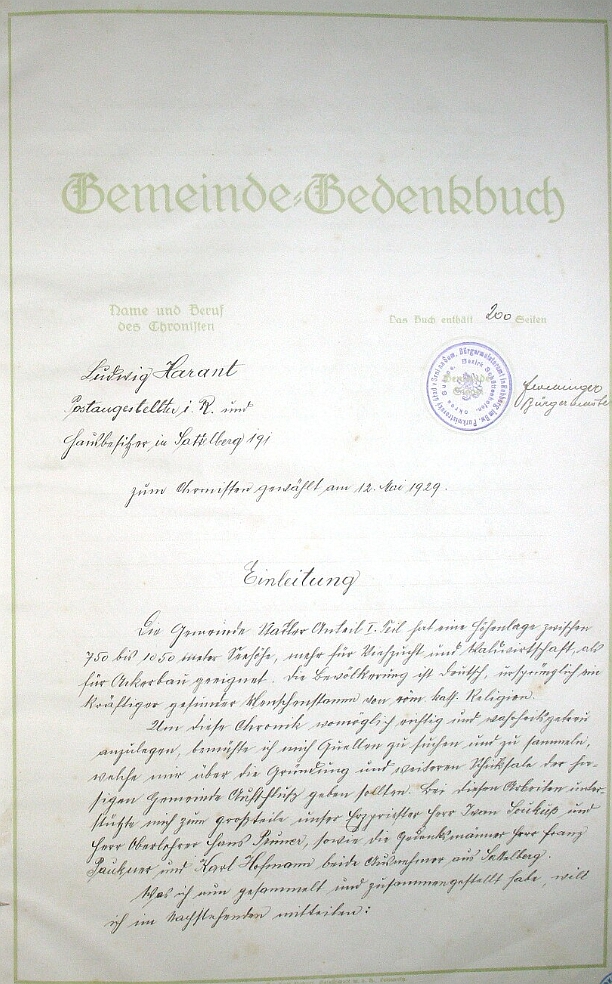 Gemeinde-Gedenkbuch
Name und Beruf
des Chronisten
Das Buch enthält 200 Seiten
Ludwig Harant
Postangestellter i. R. und
Hausbesitzer in Sattelberg 191
Bürgermeister
zum Chronisten gewählt am 12. Mai 1929.
Einleitung
Die Gemeinde Stadler Anteil I. Teil hat eine Höhenlage zwischen
750 bis 1050 Meter Seehöhe, mehr für Viehzucht und Waldwirtschaft, als
für Ackerbau geeignet. Die Bevölkerung ist deutsch, ursprünglich ein
kräftiger gesunder Menschenstamm von röm. kath. Religion.
Um diese Chronik womöglich richtig und wahrheitsgetreu
anzulegen, bemühte ich mich Quellen zu suchen und zu sammeln,
welche mir über die Gründung und weiteren Schicksale der hie-
sigen Gemeinde Aufschluß geben sollten. Bei diesen Arbeiten unter-
stützte mich zum großteile unser Herr Iwan und
Herr Oberlehrer Hans sowie die Gedenkmänner Herr Franz
Paukner und Karl Hofmann beide Ausnehmer aus Sattelberg.
Was ich nun gesammelt und zusammengestellt habe, will
ich im Nachstehenden mitteilen: